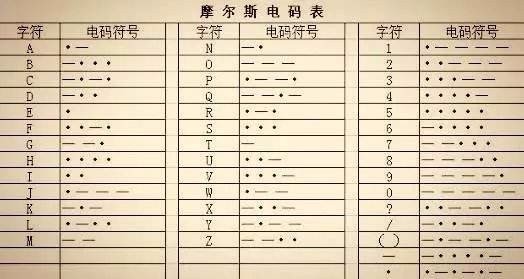 摩尔斯电码表
字符 电码符号 字符 电码符号 字符 电码符号
A •— N —• 1 •————
B —••• O ——— 2 ••———
C —•—• P •——• 3 •••——
D —•• Q ——•— 4 ••••—
E • R •—• 5 •••••
F ••—• S ••• 6 —••••
G ——• T — 7 ——•••
H •••• U ••— 8 ———••
I •• V •••— 9 ————•
J •——— W •—— 0 —————
K —•— X —••— ? ••——••
L •—•• Y —•—— / —••—•
M —— Z ——•• () —•——•—
— —••••—
• •—•—•—